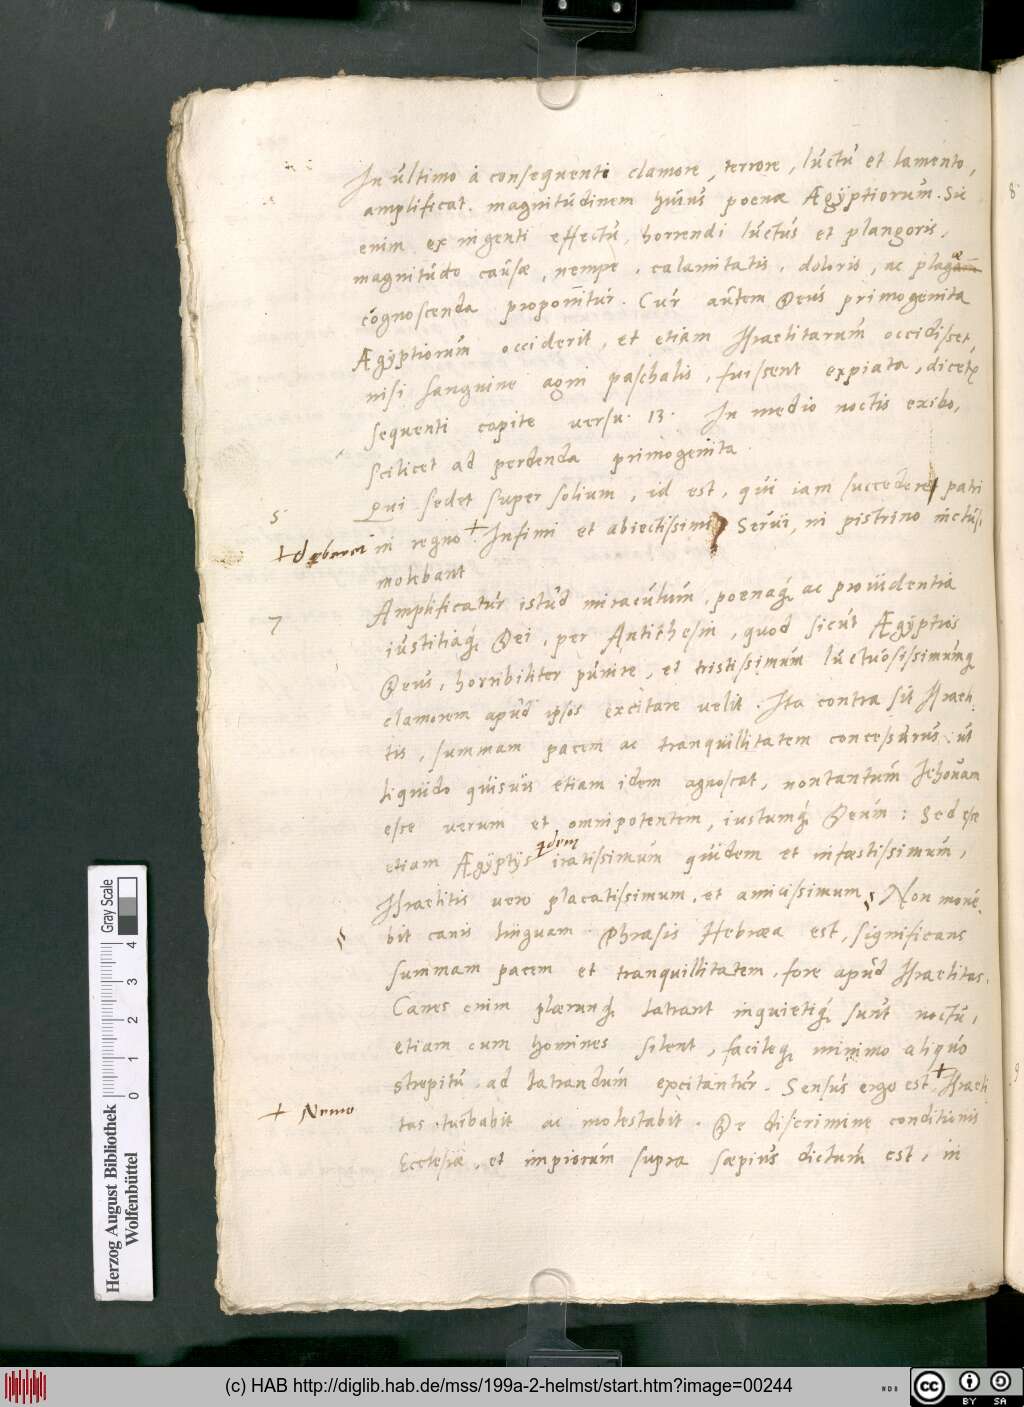 In ultimo à consequenti clamore, terrore, luctu et lamento,
amplificat magnitudinem huius poenæ Ægyptiorum. Sic
enim ex ingenti effectu, horrendi luctus et plangoris,
magnitudo causæ, nempe, calamitatis, doloris, ac plagæ
cognoscenda proponitur. Cur autem Deus primogenita
Ægyptiorum occiderit, et etiam Israelitarum occidisset,
nisi sanguine agni paschalis, fuissent expiata, dicetur
sequenti capite versu. 13. In medio noctis exibo,
scilicet ad perdenda primogenita
5 Qui sedet super solium, id est, qui iam succedere patri
in regno + Infimi et abiectissimi Servi, in pistrino inclusi
molebant
7 Amplificatur istud miraculum, poenaq; ac providentia
iustitiaq; Dei, per Antithesin, quod sicut Ægyptios
Deus, horribiliter punire, et tristissimum luctuosissimumq;
clamorem apud ipsos excitare velit. Ita contra sit Israeli
tis, summam pacem ac tranquillitatem concessurus: ut
liquido quisuis etiam idem agnoscat, non tantum Iehovam
esse verum et omnipotentem, iustumq; Deum: Sed esse
etiam Ægyptijs iratissimum quidem et infæstissimum,
Israelitis vero placatissimum, et amicissimum § Non move
bit canis linguam. Phrasis Hebræa est, significans
summam pacem et tranquillitatem, fore apud Israelitas.
Canes enim plærunq; latrant inquietiq; sunt noctu,
etiam cum homines silent, facileq; minimo aliquo
strepitu ad latrandum excitantur. Sensus ergo est + Israeli
tas turbabit ac molestabit. De discrimine conditionis
Ecclesiæ, et impiorum supra sæpius dictum est, in
§
+ Nemo
8
9
Gray Scale
0 1 2 3 4
Herzog August Bibliothek
Wolfenbüttel
(c) HAB http://diglib.hab.de/mss/199a-2-helmst/start.htm?image=00244
cc BY SA